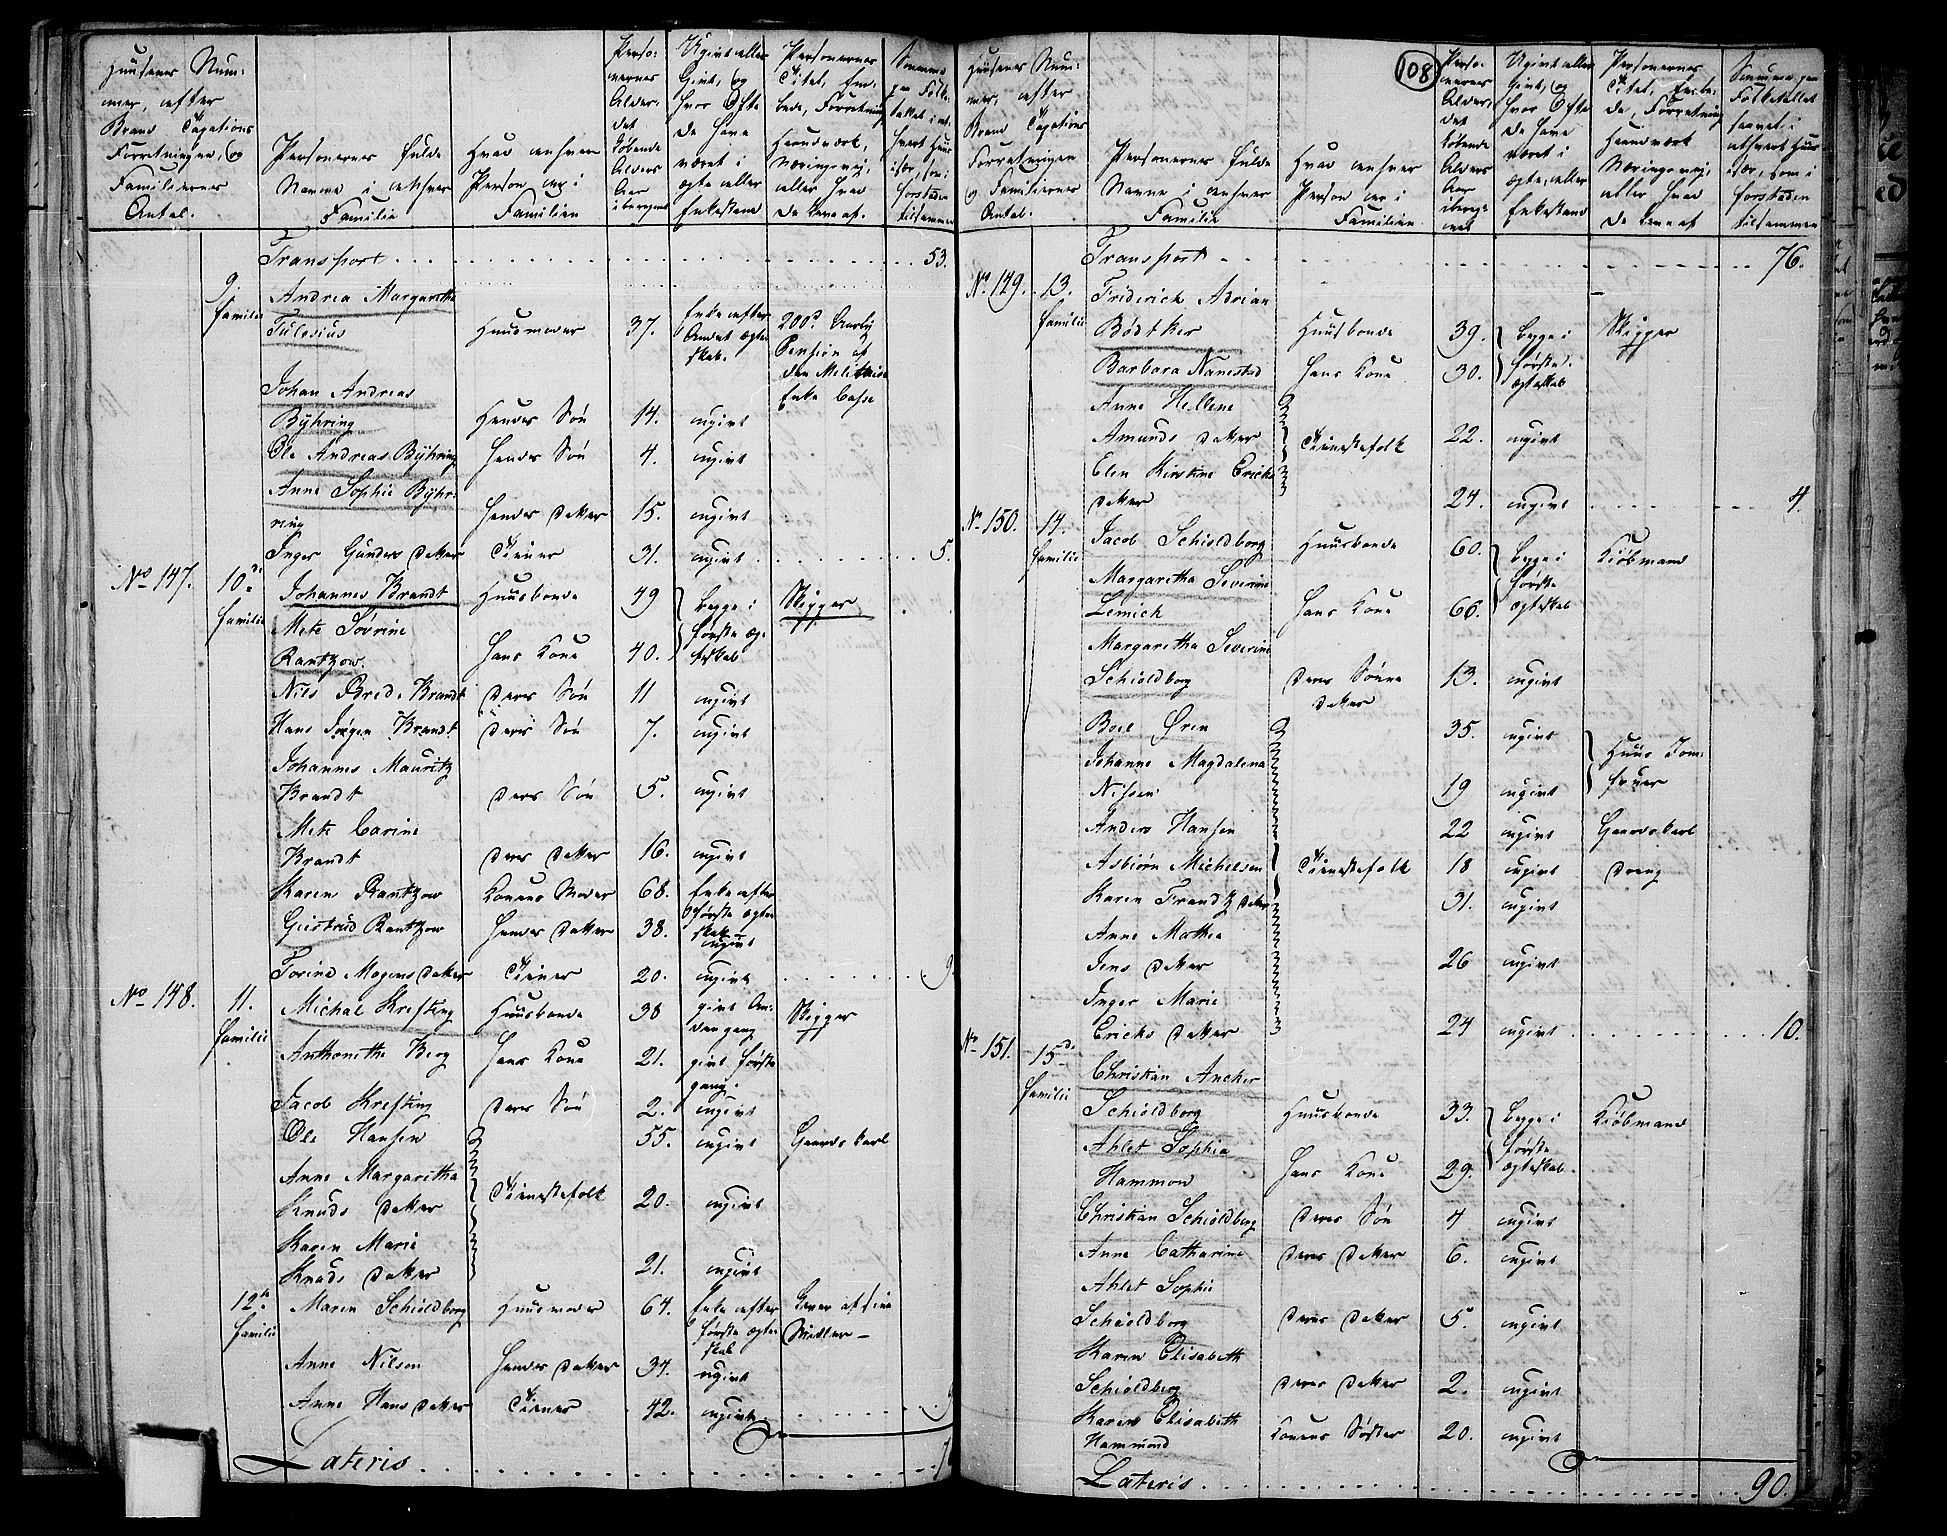 Huusenes Num-
mer, efter
Brand Taxations
Forretningen, og
Familiernes
Antal.
Personernes fulde
Navne i enhver
Familie
Hvad enhver
Person er i
Familien
Perso-
nernes
Alder,
det
løbende
Alders
Aar
iberegnet
Ugivt eller
Givt, og
hvor Ofte
De have
været i
Ægte eller
Enkestand
Personernes
Titel, Em-
bede, Forretning
Haandværk,
Næringsvej,
eller hvad
De leve af.
Transport . . . 53.
9.
Familie
Andrea Margaretha
Tulesius Huusmoder 37. Enke efter
Andet Ægte-
skab. 200rd Aarlig
Pension af
den Militaire
Enke Casse
Johan Andreas
Byhring Hendes Søn 14. ugivt
Ole Andreas Byhring Hendes Søn 4. ugivt
Anne Sophie Byhr-
ring Hendes Datter 15. ugivt
Inger Gunders Datter Tiener 31. ugivt . . . 5.
No 147. 10de
Familie
Johannes Brandt Huusbonde 49 begge i
første Æg-
teskab Skipper
Mete Søvrine
Rantzow. Hans Kone 40.
Nils Bred. Brandt Deres Søn 11 ugivt
Hans Jørgen Brandt Deres Søn 7. ugivt
Johannes Mauritz
Brandt Deres Søn 5. ugivt
Mete Carine
Brandt Deres Datter 16. ugivt
Karen Rantzow Konens Moder 68. Enke efter
første Ægte-
skab
Giertrud Rantzow Hendes Datter 38. ugivt
Torine Mogens Datter Tiener 20. ugivt . . . 9.
No 148. 11.
Familie
Michal Krefting Huusbonde 38 givt An-
den gang Skipper
Anthonethe Berg Hans Kone 21. givt første
gang.
Jacob Krefting Deres Søn 2. ugivt
Ole Hansen 55. ugivt Gaards Karl
Anne Margaretha
Knuds Datter Tienestefolk 20. ugivt
Karen Marie
Knuds Datter 21. ugivt
12te
Familie
Maren Schioldborg Huusmoder 64. Enke efter
første Ægte-
skab Lever af sine
Midler
Anne Nilsen Hendes Datter 34. ugivt
Anne Hans Datter Tiener 42. ugivt . . . 9
Lateris . . .
108
Huusenes Num-
mer, efter
Brand Taxations
Forretningen
og Familiernes
Antal.
Personernes fulde
Navne i enhver
Familie
Hvad enhver
Person er i
Familien
Perso-
nernes
Alder,
det
løbende
Alders
Aar
ibereg-
net
Ugivt eller
Givt, og
hvor Ofte
De have
været i
Ægte, eller
Enkestand
Personernes
Titel, Embe-
de, Forretning
Haandværk
Næringsvej,
eller hvad
De leve af
Summa paa
Folketallet
saavel i
ethvert Huus
især, som i
forstaden
tilsammen
Transport . . . 76.
No 149. 13.
Familie
Friderich Adrian
Bødtker Huusbonde 39. begge i
første
Ægteskab Skipper
Barbara Nanestad Hans Kone 30.
Anne Hellene
Amunds Datter Tienestefolk 22. ugivt
Elen Kirstine Ericks
Datter 24. ugivt . . . 4.
No 150. 14.
Familie
Jacob Schioldborg Huusbonde 60. begge i
første
Ægteskab Kiøbmand
Margaretha Severine
Lemich Hans Kone 66.
Margaretha Severine
Schioldborg Deres Sønne
Datter 13. ugivt
Boel Øren 35. ugivt Huus Jom-
fruer
Johanne Magdalena
Nissen 19 ugivt
Anders Hansen 22 ugivt Gaardskarl
Asbiørn Michelsen Tienestefolk 18 ugivt Dreng
Karen Frandz Datter 31. ugivt
Anne Mathea
Jens Datter 26 ugivt
Inger Marie
Ericks Datter 24 ugivt . . . 10.
No 151. 15de
Familie
Christian Ancher
Schioldborg Huusbonde 33. begge i
første
Ægteskab. Kiøbmand
Ahlet Sophia
Hammon Hans Kone 29.
Christian Schioldborg Deres Søn 4 ugivt
Anne Catharine Deres Datter 6. ugivt
Ahlet Sophie
Schioldborg Deres Datter 5. ugivt
Karen Elisabeth
Schioldborg Deres Datter 2. ugivt
Karen Elisabeth
Hammond Konens Søster 20. ugivt
Lateris . . . 90.